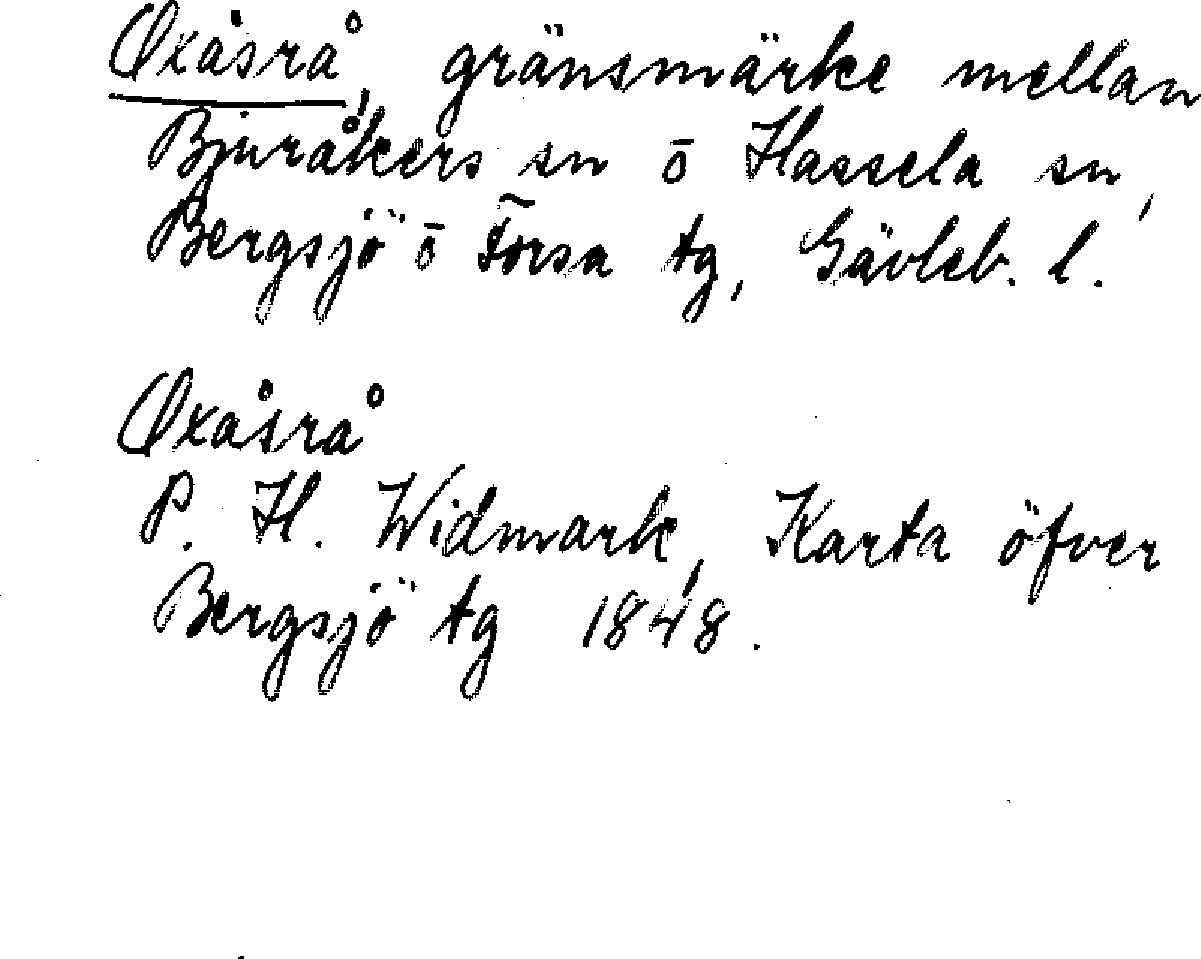 Oxåsrå, gränsmärke mellan
Bjuråkers sn ō Hassela sn,
Bergsjö ō Forsa tg, Gävleb. l.
Oxåsrå
P. H. Widmark, Karta öfver
Bergsjö tg 1848.